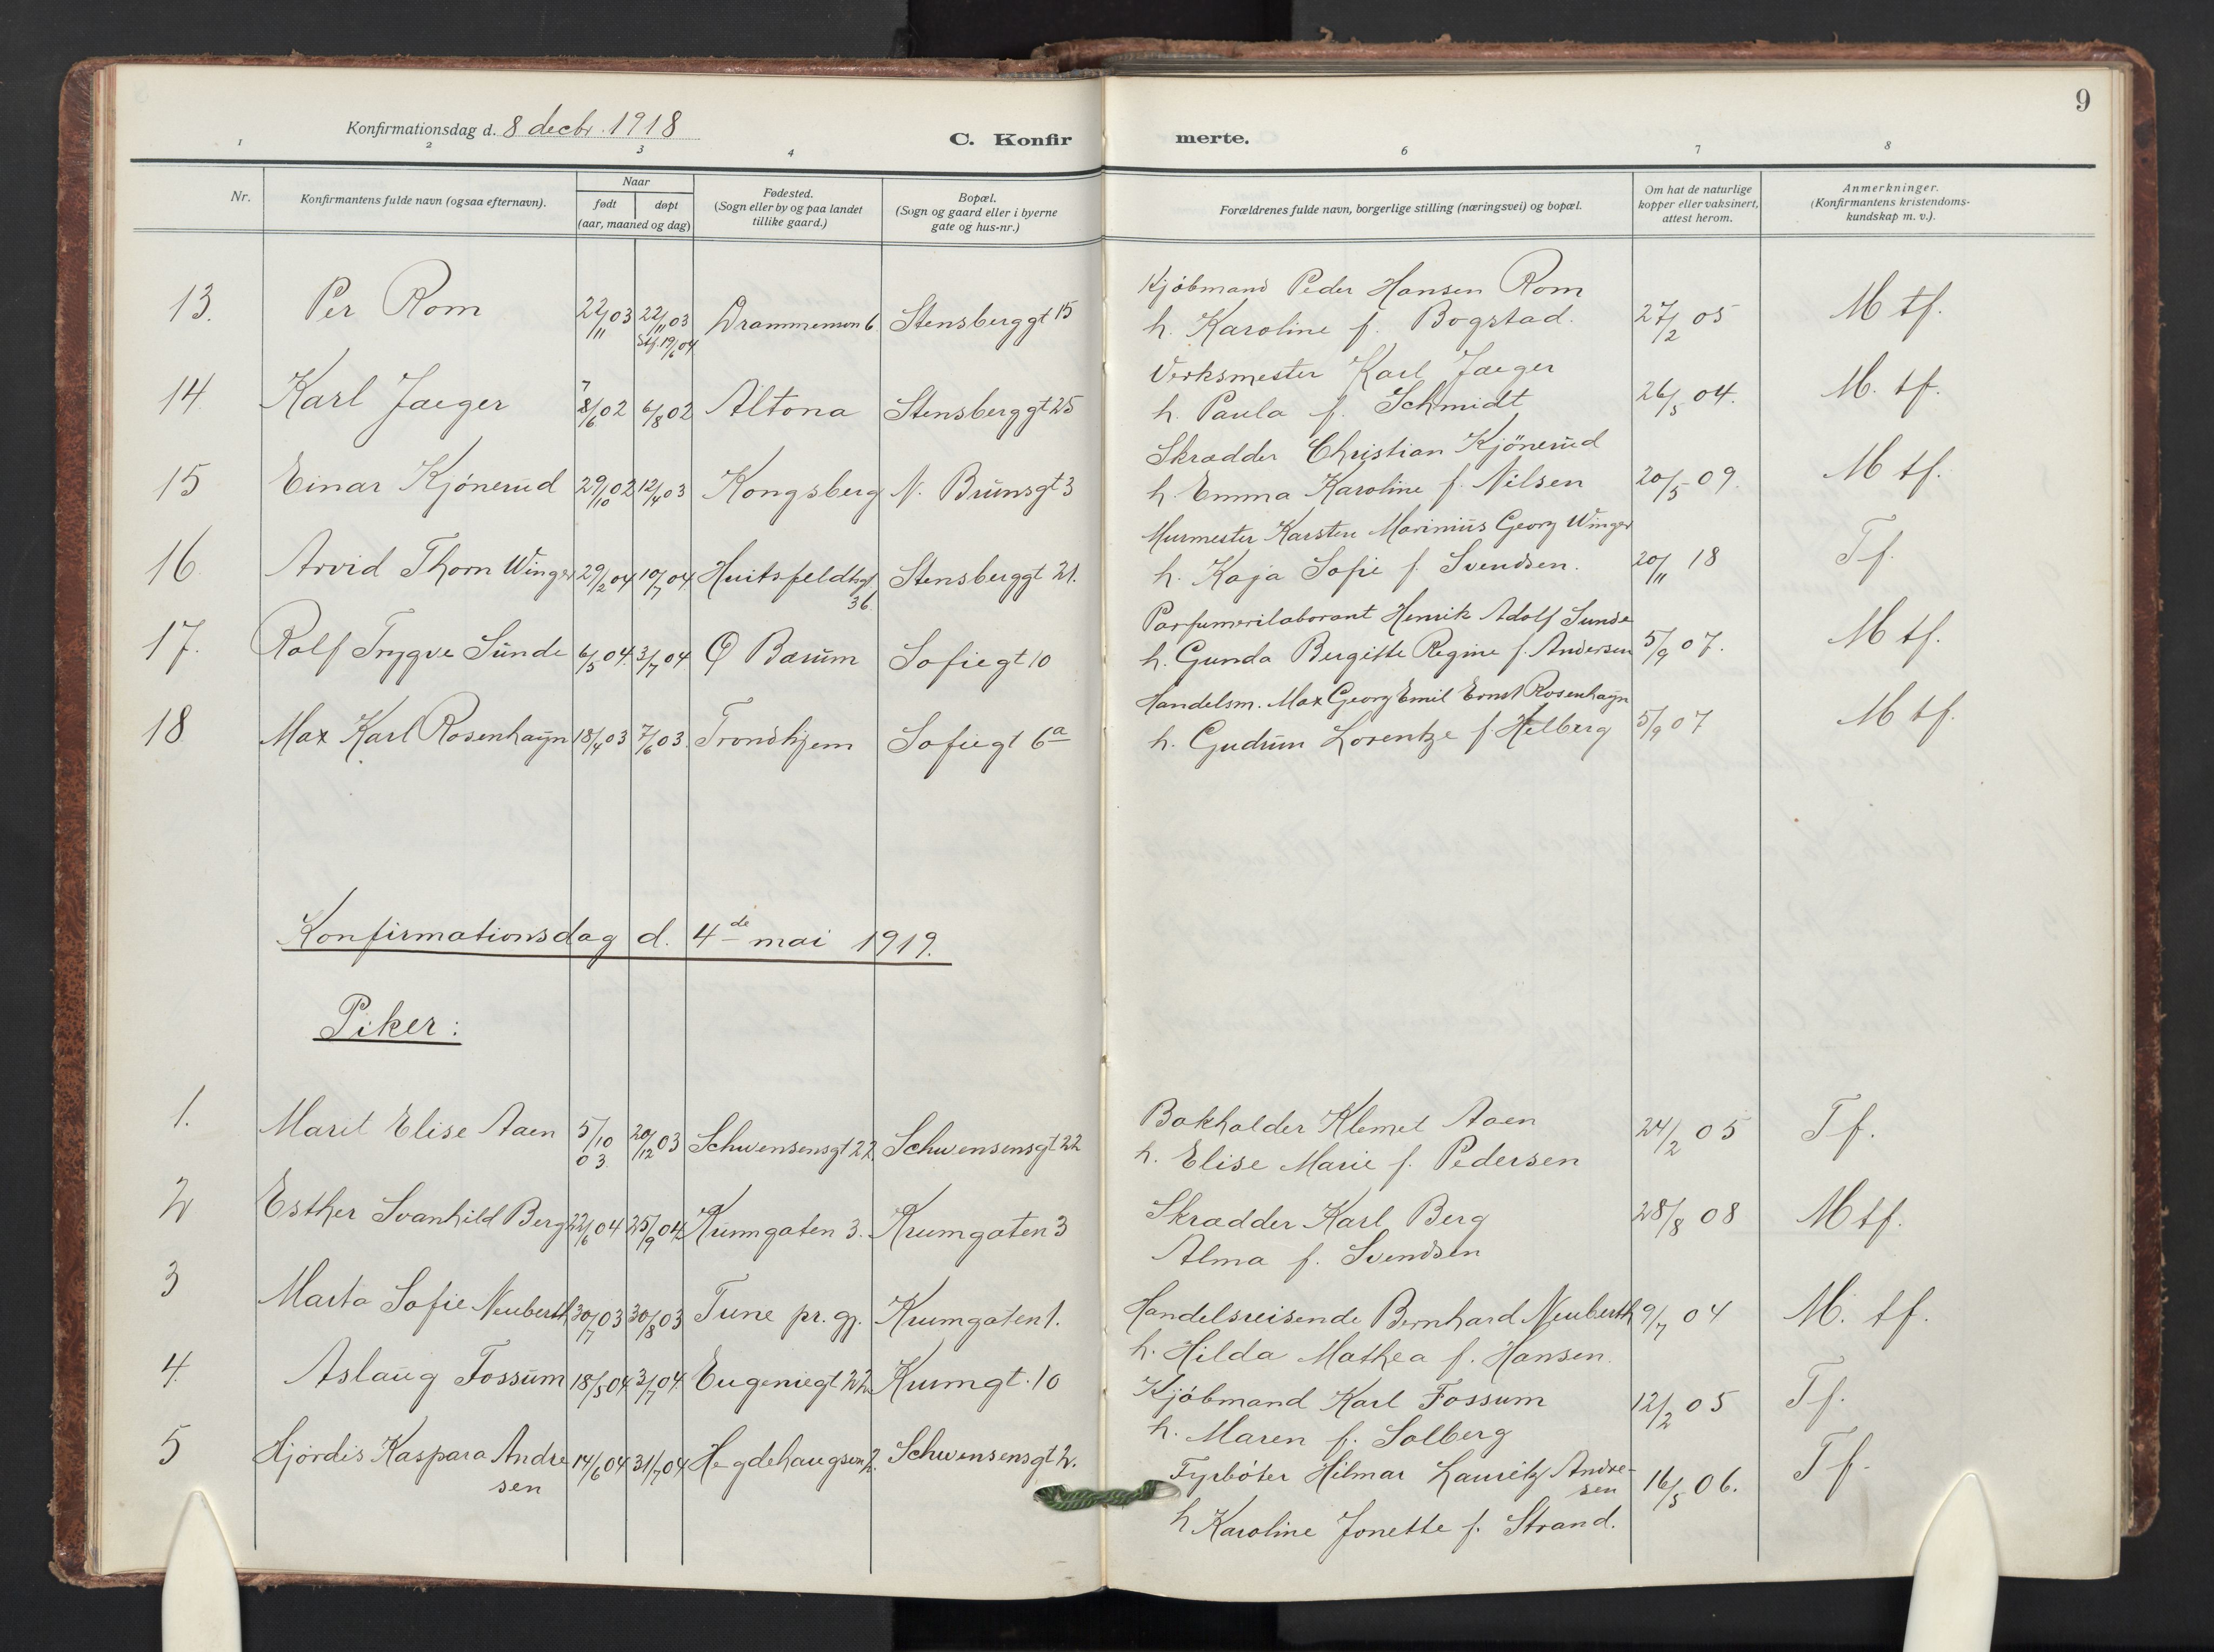 9
Konfirmationsdag d. 8 decbr. 1918
C. Konfirmerte.
1 2 3 4 6 7 8
Nr.
Konfirmantens fulde navn (ogsaa efternavn).
Naar
født døpt
(aar, maaned og dag)
Fødested.
(Sogn eller by og paa landet
tillike gaard.)
Bopæl.
(Sogn og gaard eller i byerne
gate og hus-nr.)
Forældrenes fulde navn, borgerlige stilling (næringsvei) og bopæl.
Om hat de naturlige
kopper eller vaksinert,
attest herom.
Anmerkninger.
(Konfirmantens kristendoms-
kundskap m. v.).
Kjøbmand Peder Hansen Rom
13. Per Rom 22/11 03 22/11 03 Drammensvn 6 Stensberggt 15
Stf. 19/6 04
h. Karoline f. Bogstad. 27/2 05 M tf.
Verksmester Karl Jaeger
7
14. Karl Jaeger 8/6 02 6/8 02 Altona Stensberggt 25
h. Paula f. Schmidt 26/5 04. M. tf.
Skrædder Christian Kjönerud
15 Einar Kjönerud 29/10 02 12/4 03 Kongsberg N. Brunsgt 3
h. Emma Karoline f. Nilsen 20/5 09. M tf.
Murmester Karsten Marinius Georg Winger
16 Arvid Thorn Winger 29/2 04 10/7 04 Huitsfeldtsgt Stensberggt 21.
36.
h. Kaja Sofie f. Svendsen. 20/11 18 Tf.
Parfumerilaborant Henrik Adolf Sunde
17. Rolf Trygve Sunde 6/5 04. 3/7 04 Ø Bærum Sofiegt 10
h. Gunda Bergitte Regine f. Andersen 5/9 07. M tf.
Handelsm. Max Georg Emil Ernst Rosenhayn
18 Max Karl Rosenhayn 18/4 03 7/6 03. Trondhjem Sofiegt 6a
h. Gudrun Lorentze f. Helberg 5/9 07 M tf.
Konfirmationsdag d. 4de mai 1919.
Piker:
Bokholder Klemet Aaen
1. Marit Elise Aaen 5/10 03. 20/12 03 Schwensensgt 22. Schwensensgt 22
h. Elise Marie f. Pedersen 24/2 05 Tf.
2 Esther Svanhild Berg 22/6 04 25/9 04 Krumgaten 3. Krumgaten 3
Skrædder Karl Berg 28/8 08 M tf.
Alma f. Svendsen
3 Marta Sofie Neuberth 30/7 03 30/8 03 Tune pr. gj. Krumgaten 1.
Handelsreisende Bernhard Neuberth 9/7 04 M. tf.
h. Hilda Mathea f. Hansen.
4. Aslaug Fossum 18/5 04 3/7 04 Eugeniegt 22 Krumgt. 10
Kjøbmand Karl Fossum 12/2 05 Tf.
h. Maren f. Solberg
5 Hjørdis Kaspara Andre 14/6 04 31/7 04 Hegdehaugsvn 2. Schwensensgt 2.
sen
Fyrbøter Hilmar Lauritz Andre-
sen 16/5 06. Tf.
h Karoline Jonette f. Strand.